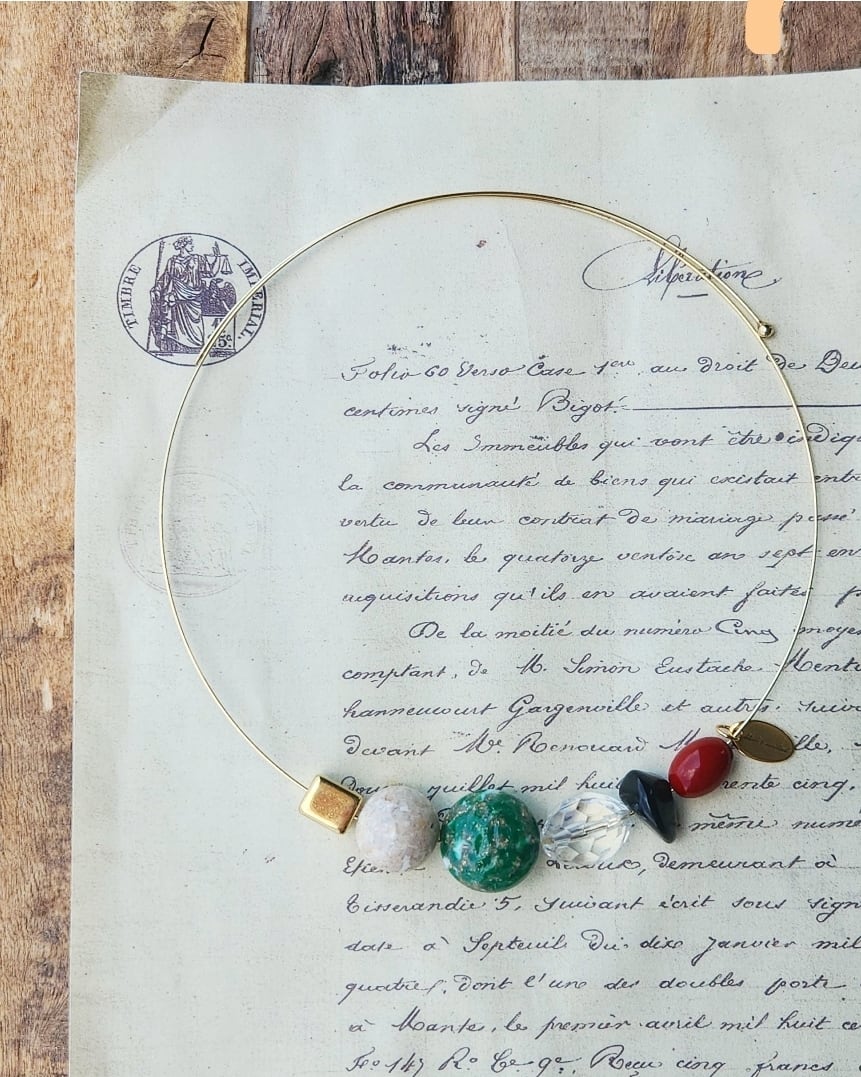 TIMBRE IMPERIAL.
5c
Libération
Folio 60 Verso Case 1ere, au droit de Deu
centimes signé Bigot.
Les Immeubles qui vont être indiq
la communauté de biens qui existait entr
vertu de leur contrat de mariage passé
Mantes, le quatorze ventôse an sept en
acquisitions qu'ils en avaient faites p
De la moitié du numéro Cinq moye
comptant, de M. Simon Eustache
hanneucourt Gargenville et autres. suiv
devant Me Renouard M lle,
juillet mil huit rente cinq.
même numé
Etie demeurant à
Tisserandie 5, suivant écrit sous sign
date à Septeuil du dix Janvier mil
quatre, dont l'un des doubles porte
à Mante, le premier avril mil huit ce
Fo 147 Ro Ce 9e, Reçu cinq francs